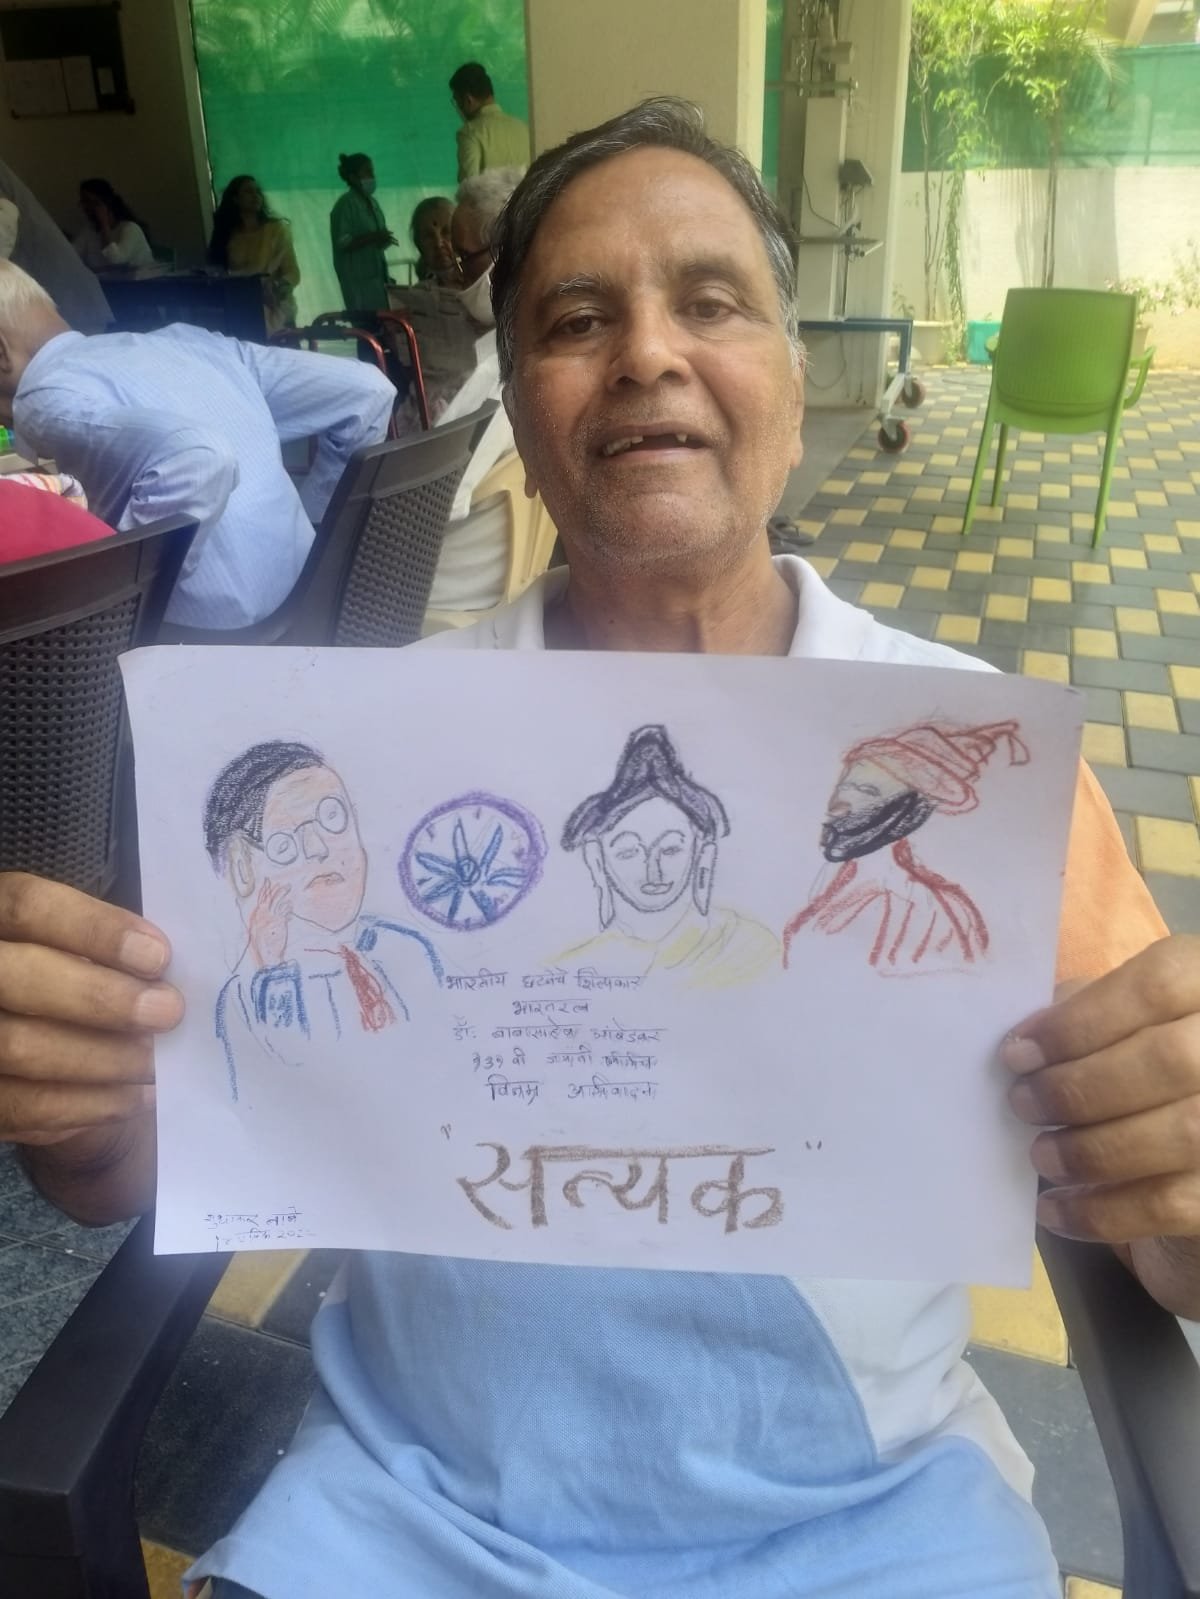 भारतीय घटनेचे शिल्पकार
भारतरत्न
डॉ. बाबासाहेब आंबेडकर
१३१ वी जयंती
विनम्र अभिवादन
"सत्यक"
सुधाकर
१४ एप्रिल